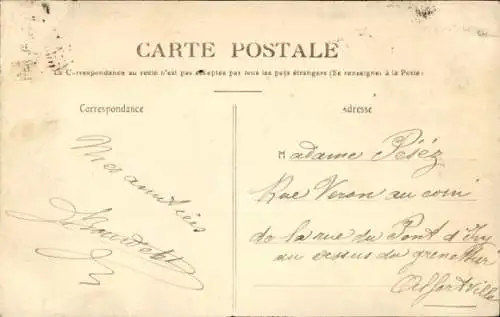 CARTE POSTALE
La Correspondance au recto n'est pas acceptée par tous les pays étrangers (Se renseigner à la Poste)
Correspondance
Adresse
Mes amitiés
Madame Péséz
Rue Véron au coin
de la rue du Pont d'Ivry
au dessus du
Alfortville